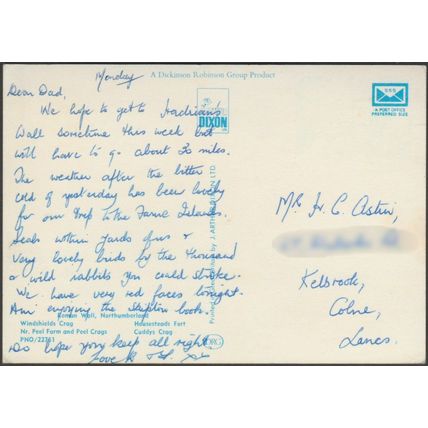 Monday
A Dickinson Robinson Group Product
Dear Dad,
We hope to get to Hadrian's
Wall sometime this week but
will have to go about 30 miles.
The weather after the bitter
cold of yesterday has been lovely
for our trip to the Farne Islands.
Seals within yards of us &
very lovely birds by the thousand
& wild rabbits you could stroke.
We have very red faces tonight.
Am enjoying the Skipton book.
Roman Wall, Northumberland
Windshields Crag
Housesteads Fort
Nr. Peel Farm and Peel Crags
Cuddys Crag
PNO/22761
Do hope you keep all right
Love
DIXON
DRG
A POST OFFICE
PREFERRED SIZE
Mr H. C. Astin,
Kelbrook,
Colne,
Lancs.